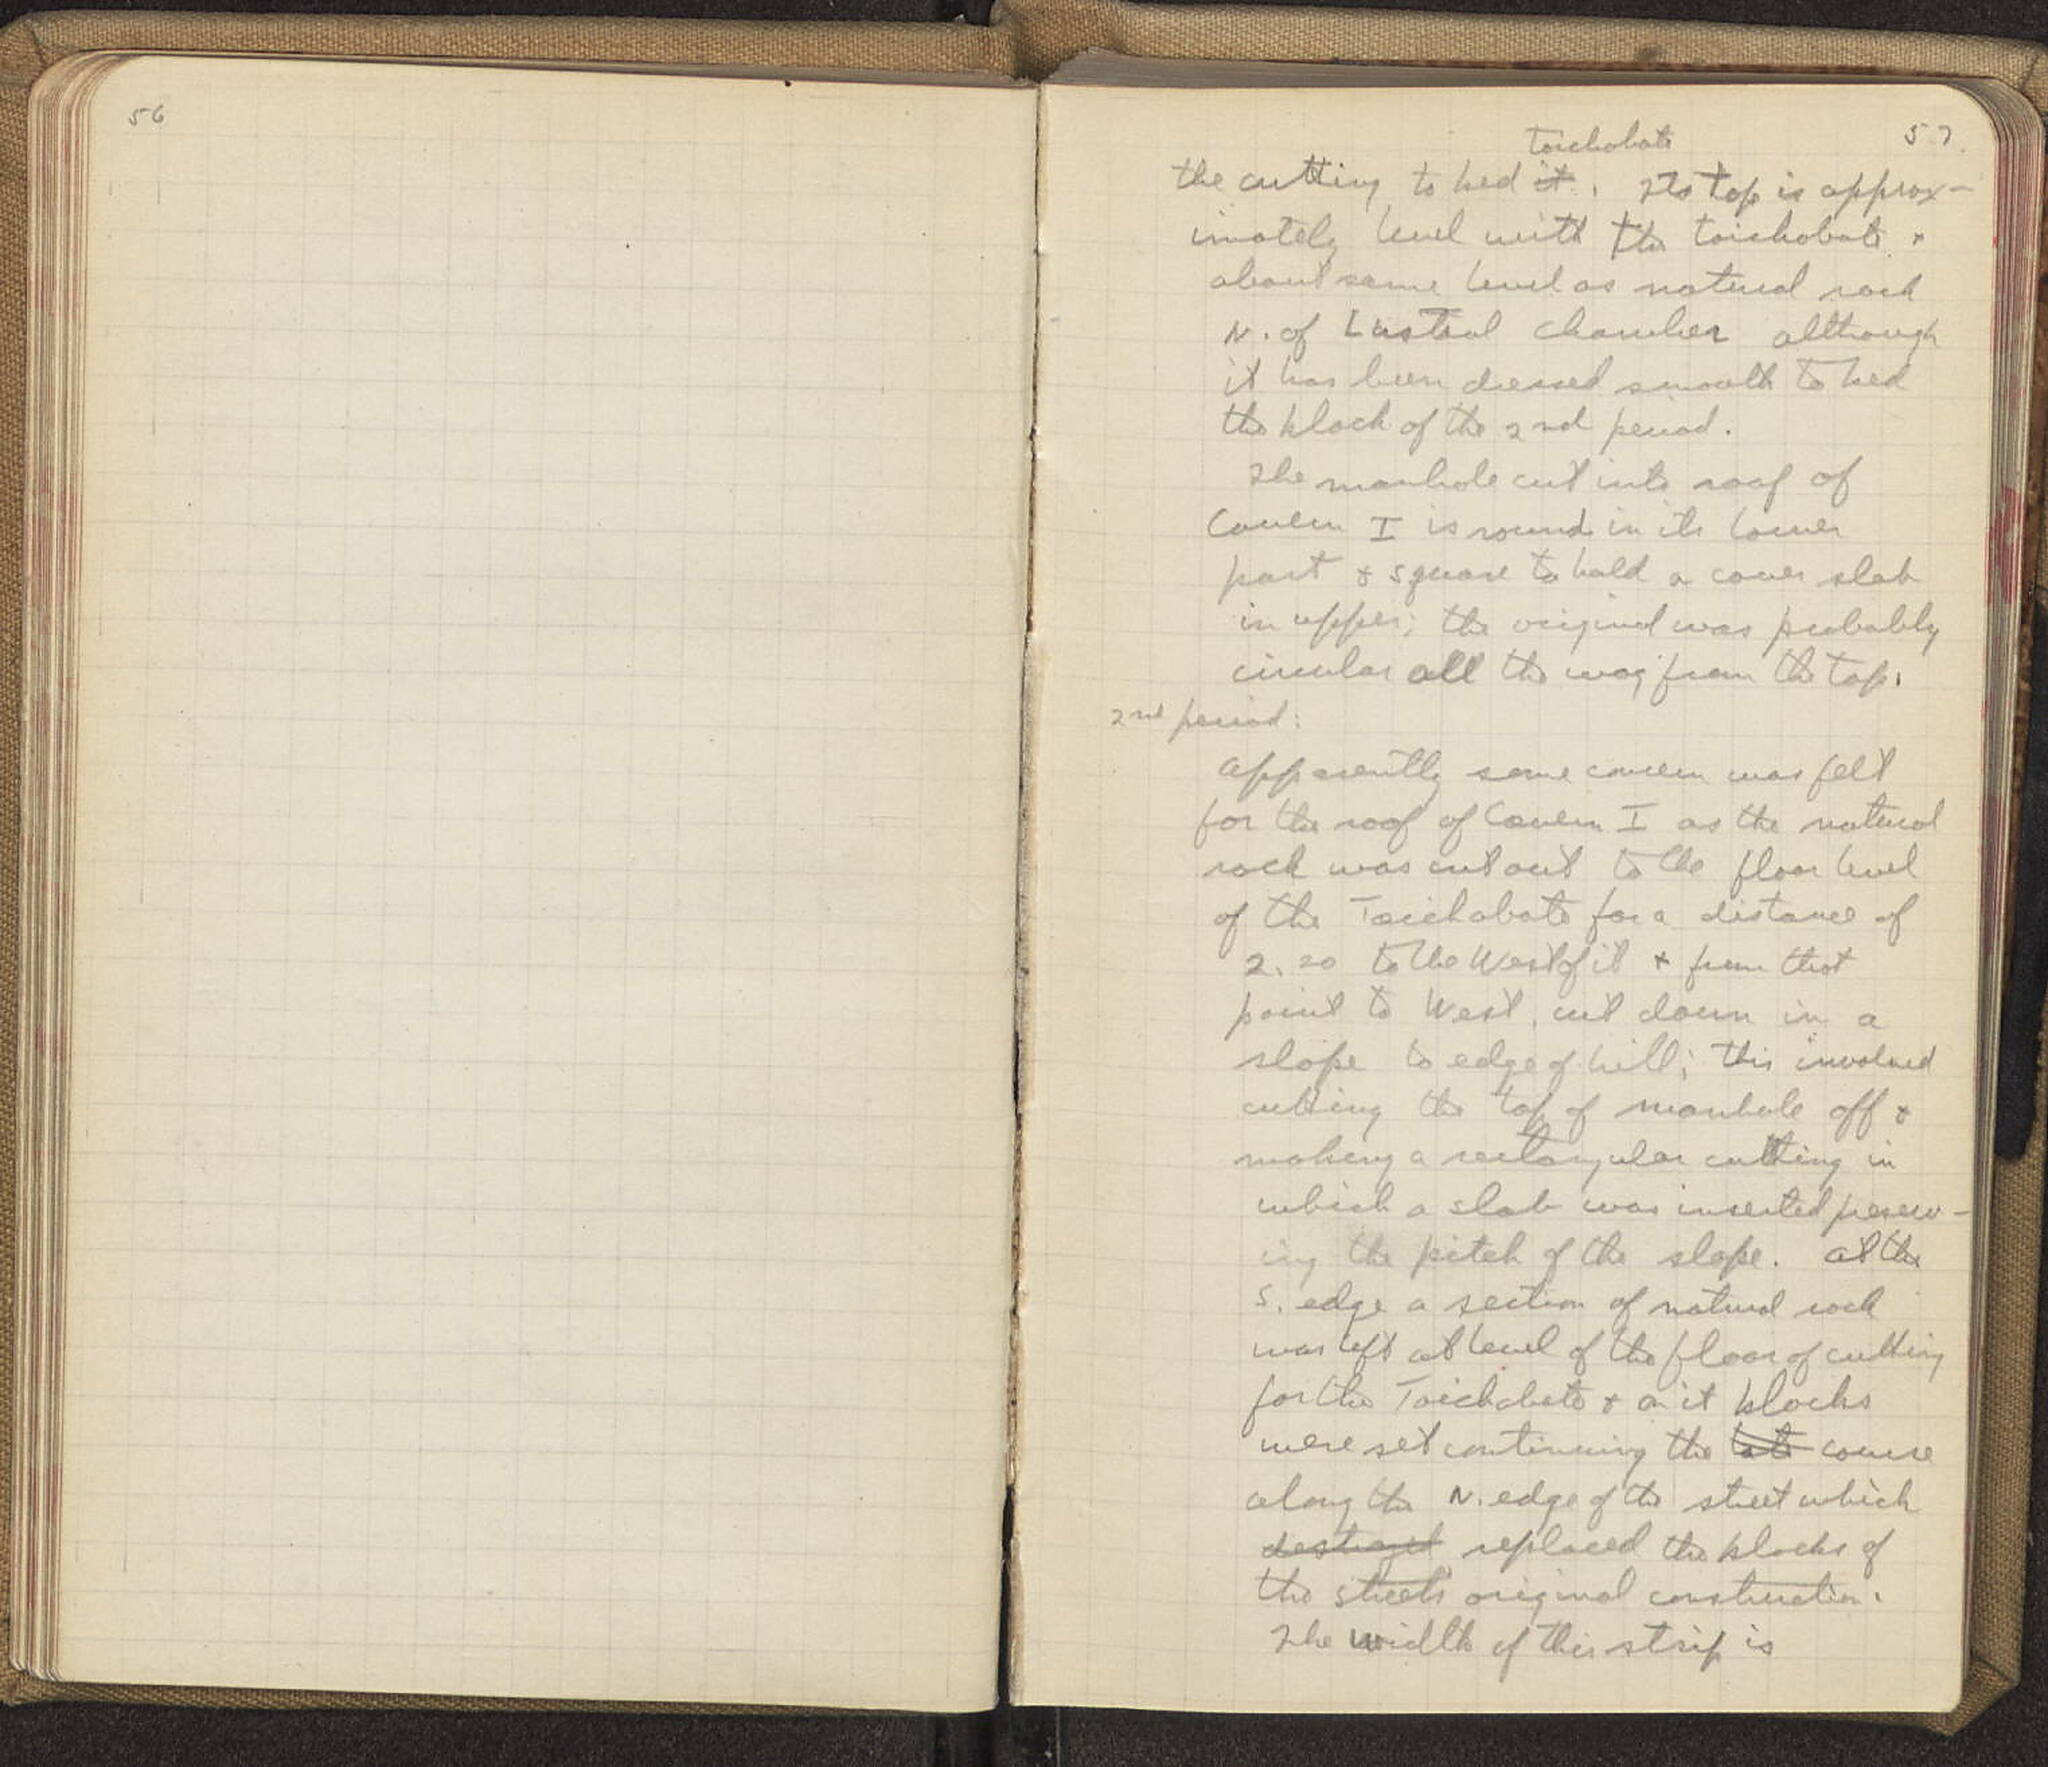 56
57.
Toichobate
the cutting to bed it. Its top is approx-
imately level with the toichobate +
about same level as natural rock
N. of Lustral Chamber although
it has been dressed smooth to bed
the block of the 2nd period.
The manhole cut into roof of
Cavern I is round in its lower
part + square to hold a cover slab
in upper; the original was probably
circular all the way from the top.
2nd period:
Apparently some concern was felt
for the roof of Cavern I as the natural
rock was cut out to the floor level
of the Toichobate for a distance of
2.20 to the West of it + from that
point to West, cut down in a
slope to edge of hill; this involved
cutting the top of manhole off +
making a rectangular cutting in
which a slab was inserted preserv-
ing the pitch of the slope. At the
S. edge a section of natural rock
was left at level of the floor of cutting
for the Toichobate + on it blocks
were set continuing the course
along the N. edge of the street which
destroyed replaced the blocks of
the streets original construction.
The width of this strip is